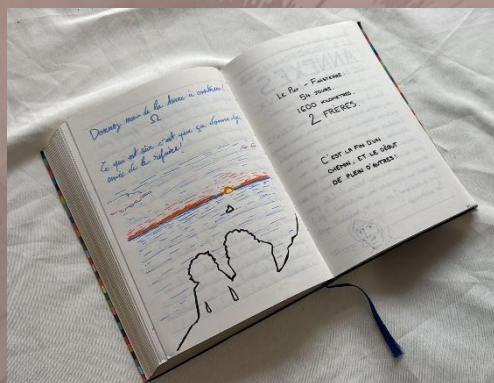 Donnez moi de la terre à continuer!
Ω
Ce qui est sûr c'est que ça donne déjà
envie de le refaire!
ANNEXES
LE PUY - FINISTERRE.
54 JOURS.
1600 KILOMETRES.
2 FRERES.
C'EST LA FIN D'UN
CHEMIN, ET LE DÉBUT
DE PLEIN D'AUTRES!